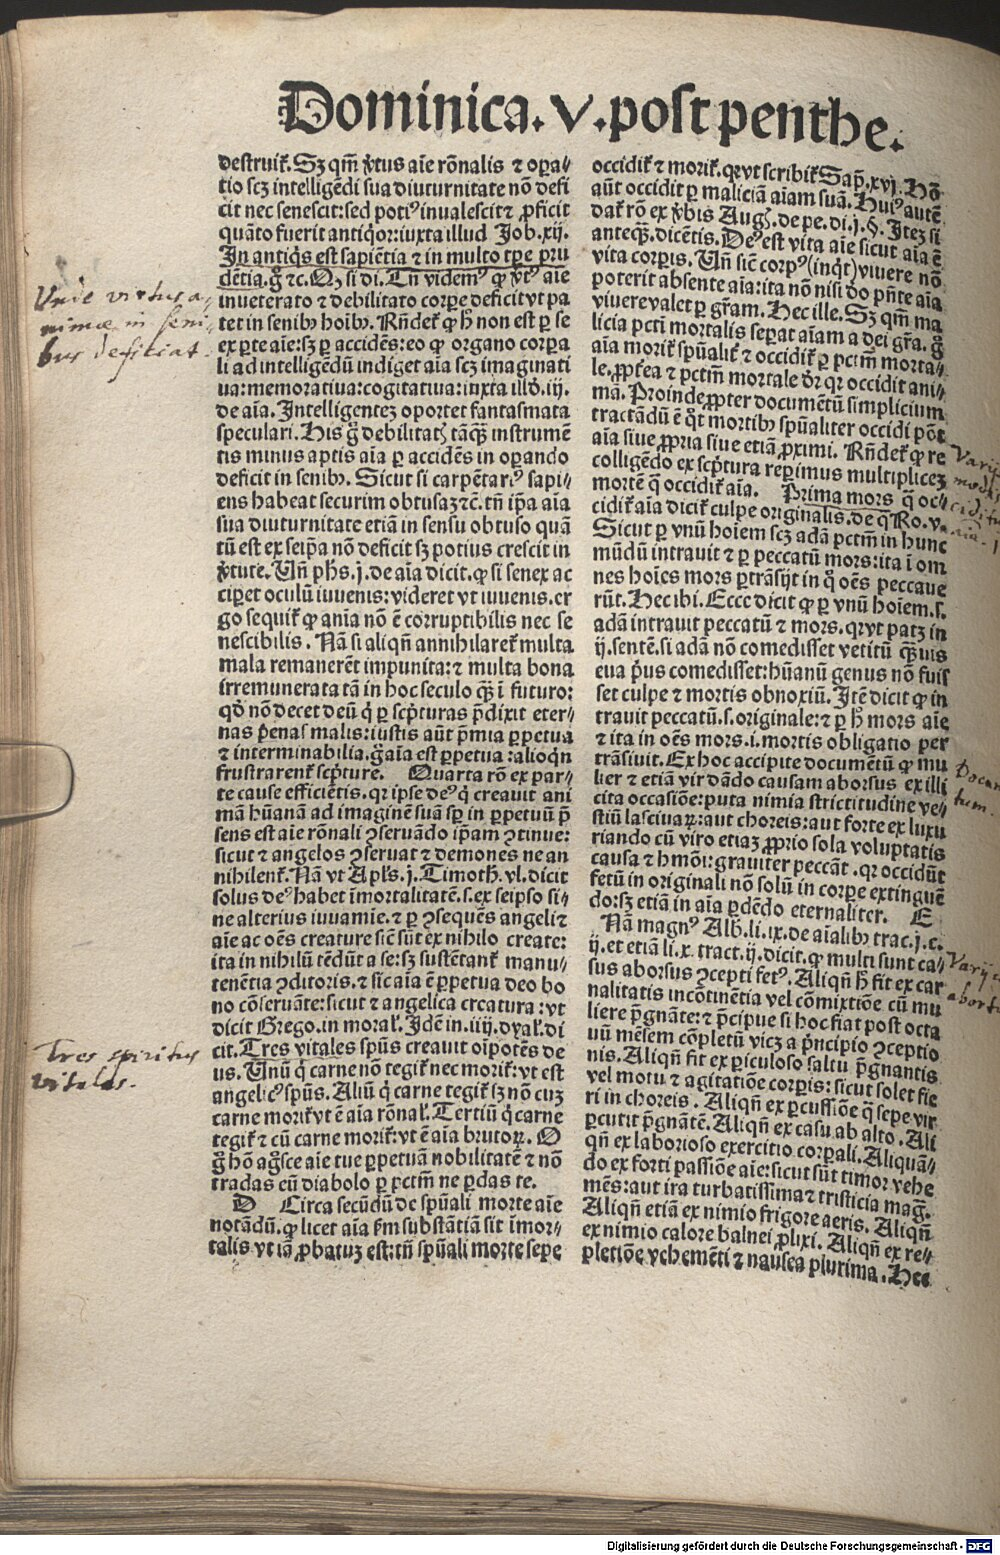 Dominica. V. post penthe.
destruiť. Sꝫ qm̄ v̓tus aīe rōnalis ⁊ oꝑa-
tio scꝫ intelligēdi sua diuturnitate nō defi
cit nec senescit: sed potiꝰ inualescit ⁊ ꝓficit
quāto fuerit antiq̓or: iuxta illud Job. xij.
In antiq̓s est sapiētia ⁊ in multo tꝑe pru
dētia. g̊ ⁊c. Qꝫ si di. Tn̄ videmꝰ ꝙ v̓tꝰ aīe
inueterato ⁊ debilitato corꝑe deficit vt pa
tet in senibꝰ hoībꝰ. Rn̄deť ꝙ h̓ non est ꝑ se
ex ꝑte aīe: sꝫ ꝑ accidēs: eo ꝙ organo corꝑa
li ad intelligēdū indiget aīa scꝫ imaginati
ua: memoratiua: cogitatiua: iuxta illd̓. iij.
de aīa. Intelligentez oportet fantasmata
speculari. His g̊ debilitatꝭ tāꝙ̄ instrumē
tis minus aptis aīa ꝑ accidēs in oꝑando
deficit in senibꝰ. Sicut si carpētariꝰ sapi-
ens habeat securim obtusaꝫ ⁊c. tn̄ ip̄a aīa
sua diuturnitate etiā in sensu obtuso quā
tū est ex seip̄a nō deficit sꝫ potius crescit in
v̓tute. Vn̄ ph̓s. j. de aīa dicit. ꝙ si senex ac
ciꝑet oculū iuuenis: videret vt iuuenis. er
go sequiť ꝙ anīa nō ē corruptibilis nec se
nescibilis. Nā si aliqn̄ annihilareť multa
mala remanerēt impunita: ⁊ multa bona
irremunerata tā in hoc seculo ꝙ̄ ī futuro:
qd̓ nō decet deū q̓ ꝑ scp̓turas p̄dixit eter-
nas penas malis: iustis aūt p̄mia ꝑpetua
⁊ interminabilia. g̊ aīa est ꝑpetua: alioqn̄
frustrarenť scp̓ture. Quarta rō ex par-
te cause efficiētis. qr ipse deꝰ q̓ creauit ani
mā hūanā ad imaginē suā sꝑ in ꝑpetuū p̄
sens est aīe rōnali ꝯseruādo ip̄am ꝯtinue:
sicut ⁊ angelos ꝯseruat ⁊ demones ne an
nihilenť. Nā vt Apl̓s. j. Timoth̓. vl. dicit
solus deꝰ habet īmortalitatē. s. ex seipso si-
ne alterius iuuamīe. ⁊ ꝑ ꝯsequēs angeli ⁊
aīe ac oēs creature sic̄ sūt ex nihilo create:
ita in nihilū tēdūt a se: sꝫ sustētanť manu-
tenētia ꝯditoris. ⁊ sic aīa ē ꝑpetua deo bo
no cōseruāte: sicut ⁊ angelica creatura: vt
dicit Grego. in moral̓. Idē in. iiij. dyal̓. di
cit. Tres vitales sp̄us creauit oīpotēs de
us. Vnū q̓ carne nō tegiť nec moriť: vt est
angelicꝰ sp̄us. Aliū q̓ carne tegiť sꝫ nō cuꝫ
carne moriť vt ē aīa rōnal̓. Tertiū q̓ carne
tegiť ⁊ cū carne moriť: vt ē aīa brutoꝝ. O
g̊ hō ag̓sce aīe tue ꝑpetuā nobilitatē ⁊ nō
tradas eū diabolo ꝑ pctm̄ ne ꝑdas te.
D Circa secūdū de sp̄uali morte aīe
notādū. ꝙ licet aīa s̓m substātiā sit īmor-
talis vt iā ꝓbatuꝫ est: tn̄ sp̄uali morte sepe
occidiť ⁊ moriť. qr vt scribiť Sap̄. xvj. Hō
aūt occidit ꝑ maliciā aīam suā. Huiꝰ autē
dať rō ex v̓bis Augꝭ. de pe. di. j. §. Iteꝫ si
anteꝙ̄. dicētis. Deꝰ est vita aīe sicut aīa ē
vita corꝑis. Vn̄ sic̄ corpꝰ (inq̓t) viuere nō
poterit absente aīa: ita nō nisi do p̄nte aīa
viuere valet ꝑ gr̄am. Hec ille. Sꝫ qm̄ ma
licia pcti mortalis seꝑat aīam a dei gr̄a. g̊
aīa moriť sp̄ualiť ⁊ occidiť ꝑ pctm̄ morta-
le. ꝓpt̓ea ⁊ pctm̄ mortale dr̓ qr occidit ani-
mā. Proinde ꝓpter documētū simplicium
tractādū ē q̊t mortibꝰ sp̄ualiter occidi pōt
aīa siue ꝓpria siue etiā ꝓximi. Rn̄deť ꝙ re
colligēdo ex scp̓tura reꝑimus multiplicez
mortē q̄ occidiť aīa. Prima mors q̄ oc-
cidiť aīa diciť culpe originalis. de q̄ Ro. v.
Sicut ꝑ vnū hoīem scꝫ adā pctm̄ in hunc
mūdū intrauit ⁊ ꝑ peccatū mors: ita ī om
nes hoīes mors ꝑtrāsijt in q̊ oēs peccaue
rūt. Hec ibi. Ecce dicit ꝙ ꝑ vnū hoīem. s.
adā intrauit peccatū ⁊ mors. qr vt patꝫ in
ij. sentē. si adā nō comedisset vetitū ꝙ̄uis
eua p̓us comedisset: hūanū genus nō fuis
set culpe ⁊ mortis obnoxiū. Itē dicit ꝙ in
trauit peccatū. s. originale: ⁊ ꝑ h̓ mors aīe
⁊ ita in oēs mors. i. mortis obligatio per
trāsiuit. Ex hoc accipite documētū ꝙ mu
lier ⁊ etiā vir dādo causam aborsus ex illi
cita occasiōe: puta nimia strictitudine ve-
stiū lasciuaꝝ: aut choreis: aut forte ex luxu
riando cū viro etiaꝫ ꝓprio sola voluptatis
causa ⁊ hmōi: grauiter peccāt. qr occidūt
fetū in originali nō solū in corꝑe extinguē
do: sꝫ etiā in aīa ꝑdēdo eternaliter. E
Nā magnꝰ Alb̓. li. ix. de aīalibꝰ trac. j. c.
ij. et etiā li. x. tract. ij. dicit. ꝙ multi sunt ca-
sus aborsus ꝯcepti fetꝰ. Aliqn̄ h̓ fit ex car
nalitatis incōtinētia vel cōmixtiōe cū mu
liere p̄gnāte: ⁊ p̄cipue si hoc fiat post octa
uū mēsem cōpletū vicꝫ a p̓ncipio ꝯceptio
nis. Aliqn̄ fit ex ꝑiculoso saltu p̄gnantis
vel motu ⁊ agitatiōe corꝑis: sicut solet fie
ri in choreis. Aliqn̄ ex ꝑcussiōe q̄ sepe vir
ꝑcutit p̄gnātē. Aliqn̄ ex casu ab alto. Ali
qn̄ ex laborioso exercitio corꝑali. Aliquā-
do ex forti passiōe aīe: sicut sūt timor vehe
mēs: aut ira turbatissima ⁊ tristicia maḡ.
Aliqn̄ etiā ex nimio frigore aeris. Aliqn̄
ex nimio calore balnei ꝓlixi. Aliqn̄ ex re-
pletiōe vehemēti ⁊ nausea plurima. Hec
virtus a-
nimae in seni-
bus deficiat.
Tres spiritus
vitales.
Varij
Docum
tum.
Varij
abortu
Digitalisierung gefördert durch die Deutsche Forschungsgemeinschaft - DFG